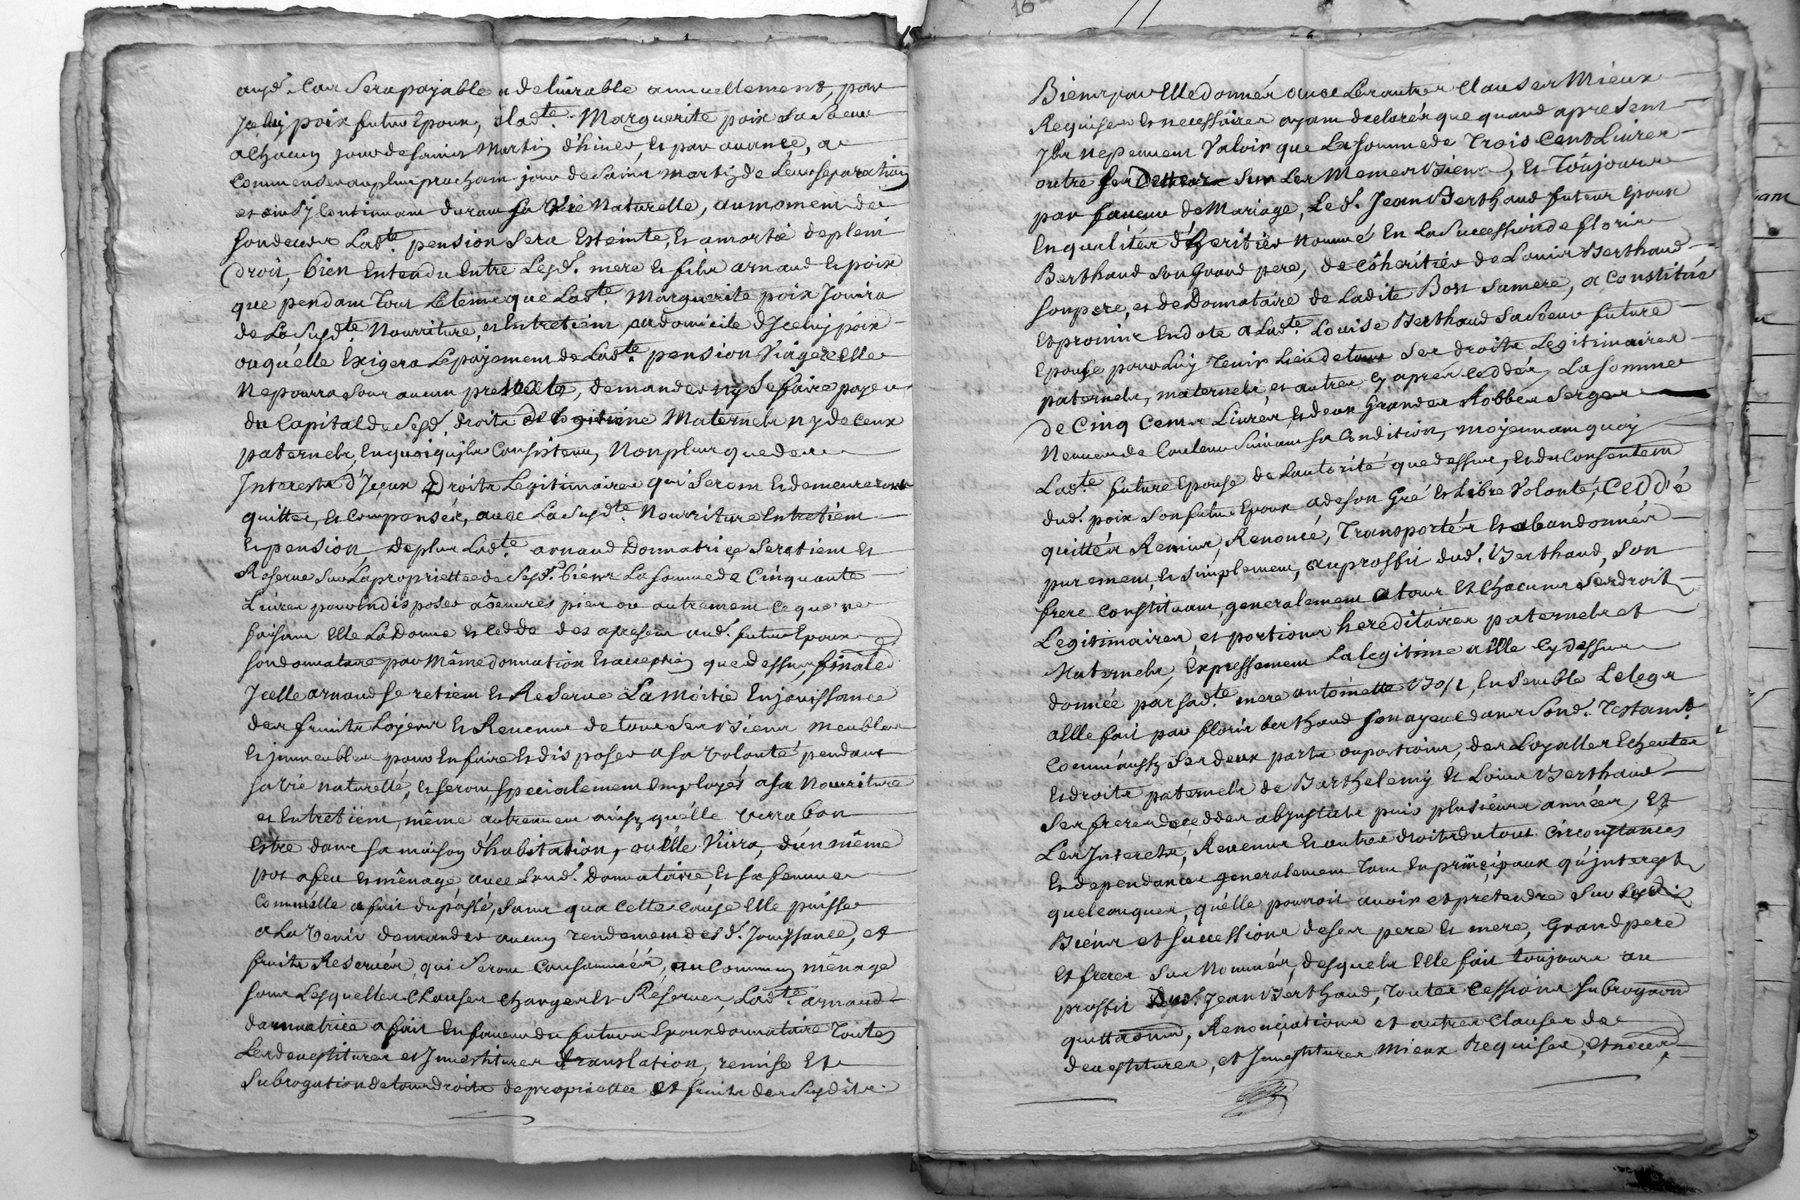 susd. Cas Sera payable et delivrable annuellement, par
Jceluy poix futur Epoux, a lade. Marguerite poix Sa Soeur
a Chacun jour de saint Martin d'hiver, Et par avance, a
Commencer au plus prochain jour de Saint Martin de Leur Separation
et ainsy Continuant durant Sa Vie Naturelle, au moment de
Son decedz Ladte. pension Sera Esteinte, Et amortie de plein
droit, bien Entendu Entre Lesds. mere Et fils arnaud Et poix
que pendant Tout Le temps que Ladte. Marguerite poix Jouira
de La Susdte. Nourriture, et Entretient au domicile d'Jceluy poix
ou qu'elle Exigera Le payement de Ladte. pension Viagere Elle
Ne pourra Sous aucun pretexte, demander ny Se faire payer
du Capital de Sesds. droits de legitime Maternels ny de Ceux
paternels En quoi qu'ils Consistent, Non plus que des
Interests d'Jceux Droits Legitimaires qui Seront Et demeureront
quittes, Et Compensés, avec La Susdte. Nourriture Entretient
Et pension, de plus Ladte. arnaud Donnatrice Se retient Et
Reserve Sur La proprietté de Sesds. biens La somme de Cinquante
Livres pour En disposer a Oeuvres pies ou autrement Ce que ne
faisant Elle La donne Et Cedde des apresent aud. futur Epoux
Son donnataire par Même donnation Et acception que dessus, finaled.
Jcelle arnaud Se retient Et Reserve La Moitié En jouissance
des fruits Loyers Et Revenus de tous Ses Biens Meubles
Et jmmeubles pour En faire Et disposer a Sa Volonté pendant
Sa Vie naturelle, Et Seront Specialement Employés a Sa Nourriture
et Entretient, même autrement ainsy qu'elle Verra bon
Estre dans Sa maison d'habitation, ou Elle Vivra, d'un même
pot a feu Et ménage, avec Sond. Donnataire Et Sa femme
Comm'elle a fait du passé, Sans qu'a Cette Cause Elle puisse
a La Venir demander aucun rendement desd. Jouissance, et
fruits Reservés, qui Seront Consommés, au Commun ménage
Sous Lesquelles Clauses Charges Et Reserves, Ladte. arnaud
donnatrice a fait En faveur du futur Epoux donnataire Toutes
Les devestitures et Jnvestitures translation, remise Et
Subrogation de tous droits de proprietté et fruits des Susdits
Biens par Elle donnés avec Les autres Clauses Mieux
Requises Et necessaires ayant declarés que quand apresent
Jls ne peuvent Valoir que La somme de Trois Cent Livres
outre Ses Dettes Sur Les Memes Biens, Et Toujours
par faveur de Mariage, Led. Jean Berthaud futur Epoux
En qualités d'heritier Nommé En La Succession de florie
Berthaud Son Grand pere, de Cohéritier de Louis Berthaud
Son pere, et de Donnataire de Ladite Bost Sa mere, a Constitué
Et promis En dote a Ladte. Louise Berthaud Sa Soeur future
Epouse pour Luy Tenir Lieu de tous Ses droits Legitimaires
paternels, maternels, et autres Cy aprés Ceddés La Somme
de Cinq Cent Livres, Et deux Grandes Robbes Serge
Neuves de Couleur Suivant Sa Condition, moyennant quoy
Ladte. future Epouse de L'autorité que dessus, Et du Consentem
dud. poix Son futur Epoux a de son Gré Et Libre Volonté, Ceddé
quittés Remis, Renoncé, Transportés Et abandonnés
purement, Et Simplement, au proffit dud. Berthaud, Son
frere Constituant, generalement a tous Et Chacuns Ses droits
Legitimaires et portions hereditaires paternels et
Maternels, Expressement La legitime a Elle Cy dessus
donnée par Sadte. mere antoinette Bost, En Semble Le legs
a Elle fait par florie berthaud Son ayeul dans Sond. Testamt.
Comm'aussy Ses deux parts ou portions, des Loyalles Echeutes
Et droits paternels de Barthelemy Et Loüis Berthaud
Ses freres deceddés abjntestats puis plusieurs années, Et
Les Jnterets, Revenus Et autres droits du tout Circonstances
Et dependances generalement Tous En principaux qu'jnterests
quelconques, qu'elle pourroit avoir et pretendre Sur Lesdits
Biens et Successions de Ses pere Et mere, Grand pere
Et freres Sus Nommés, desquels Elle fait toujours au
proffit dud. Jean Berthaud, Toutes Cessions Subrogaōn
quittaōns, Renonciations et autres Clauses de
devestitures, et Jnvestitures Mieux Requises, et necess.